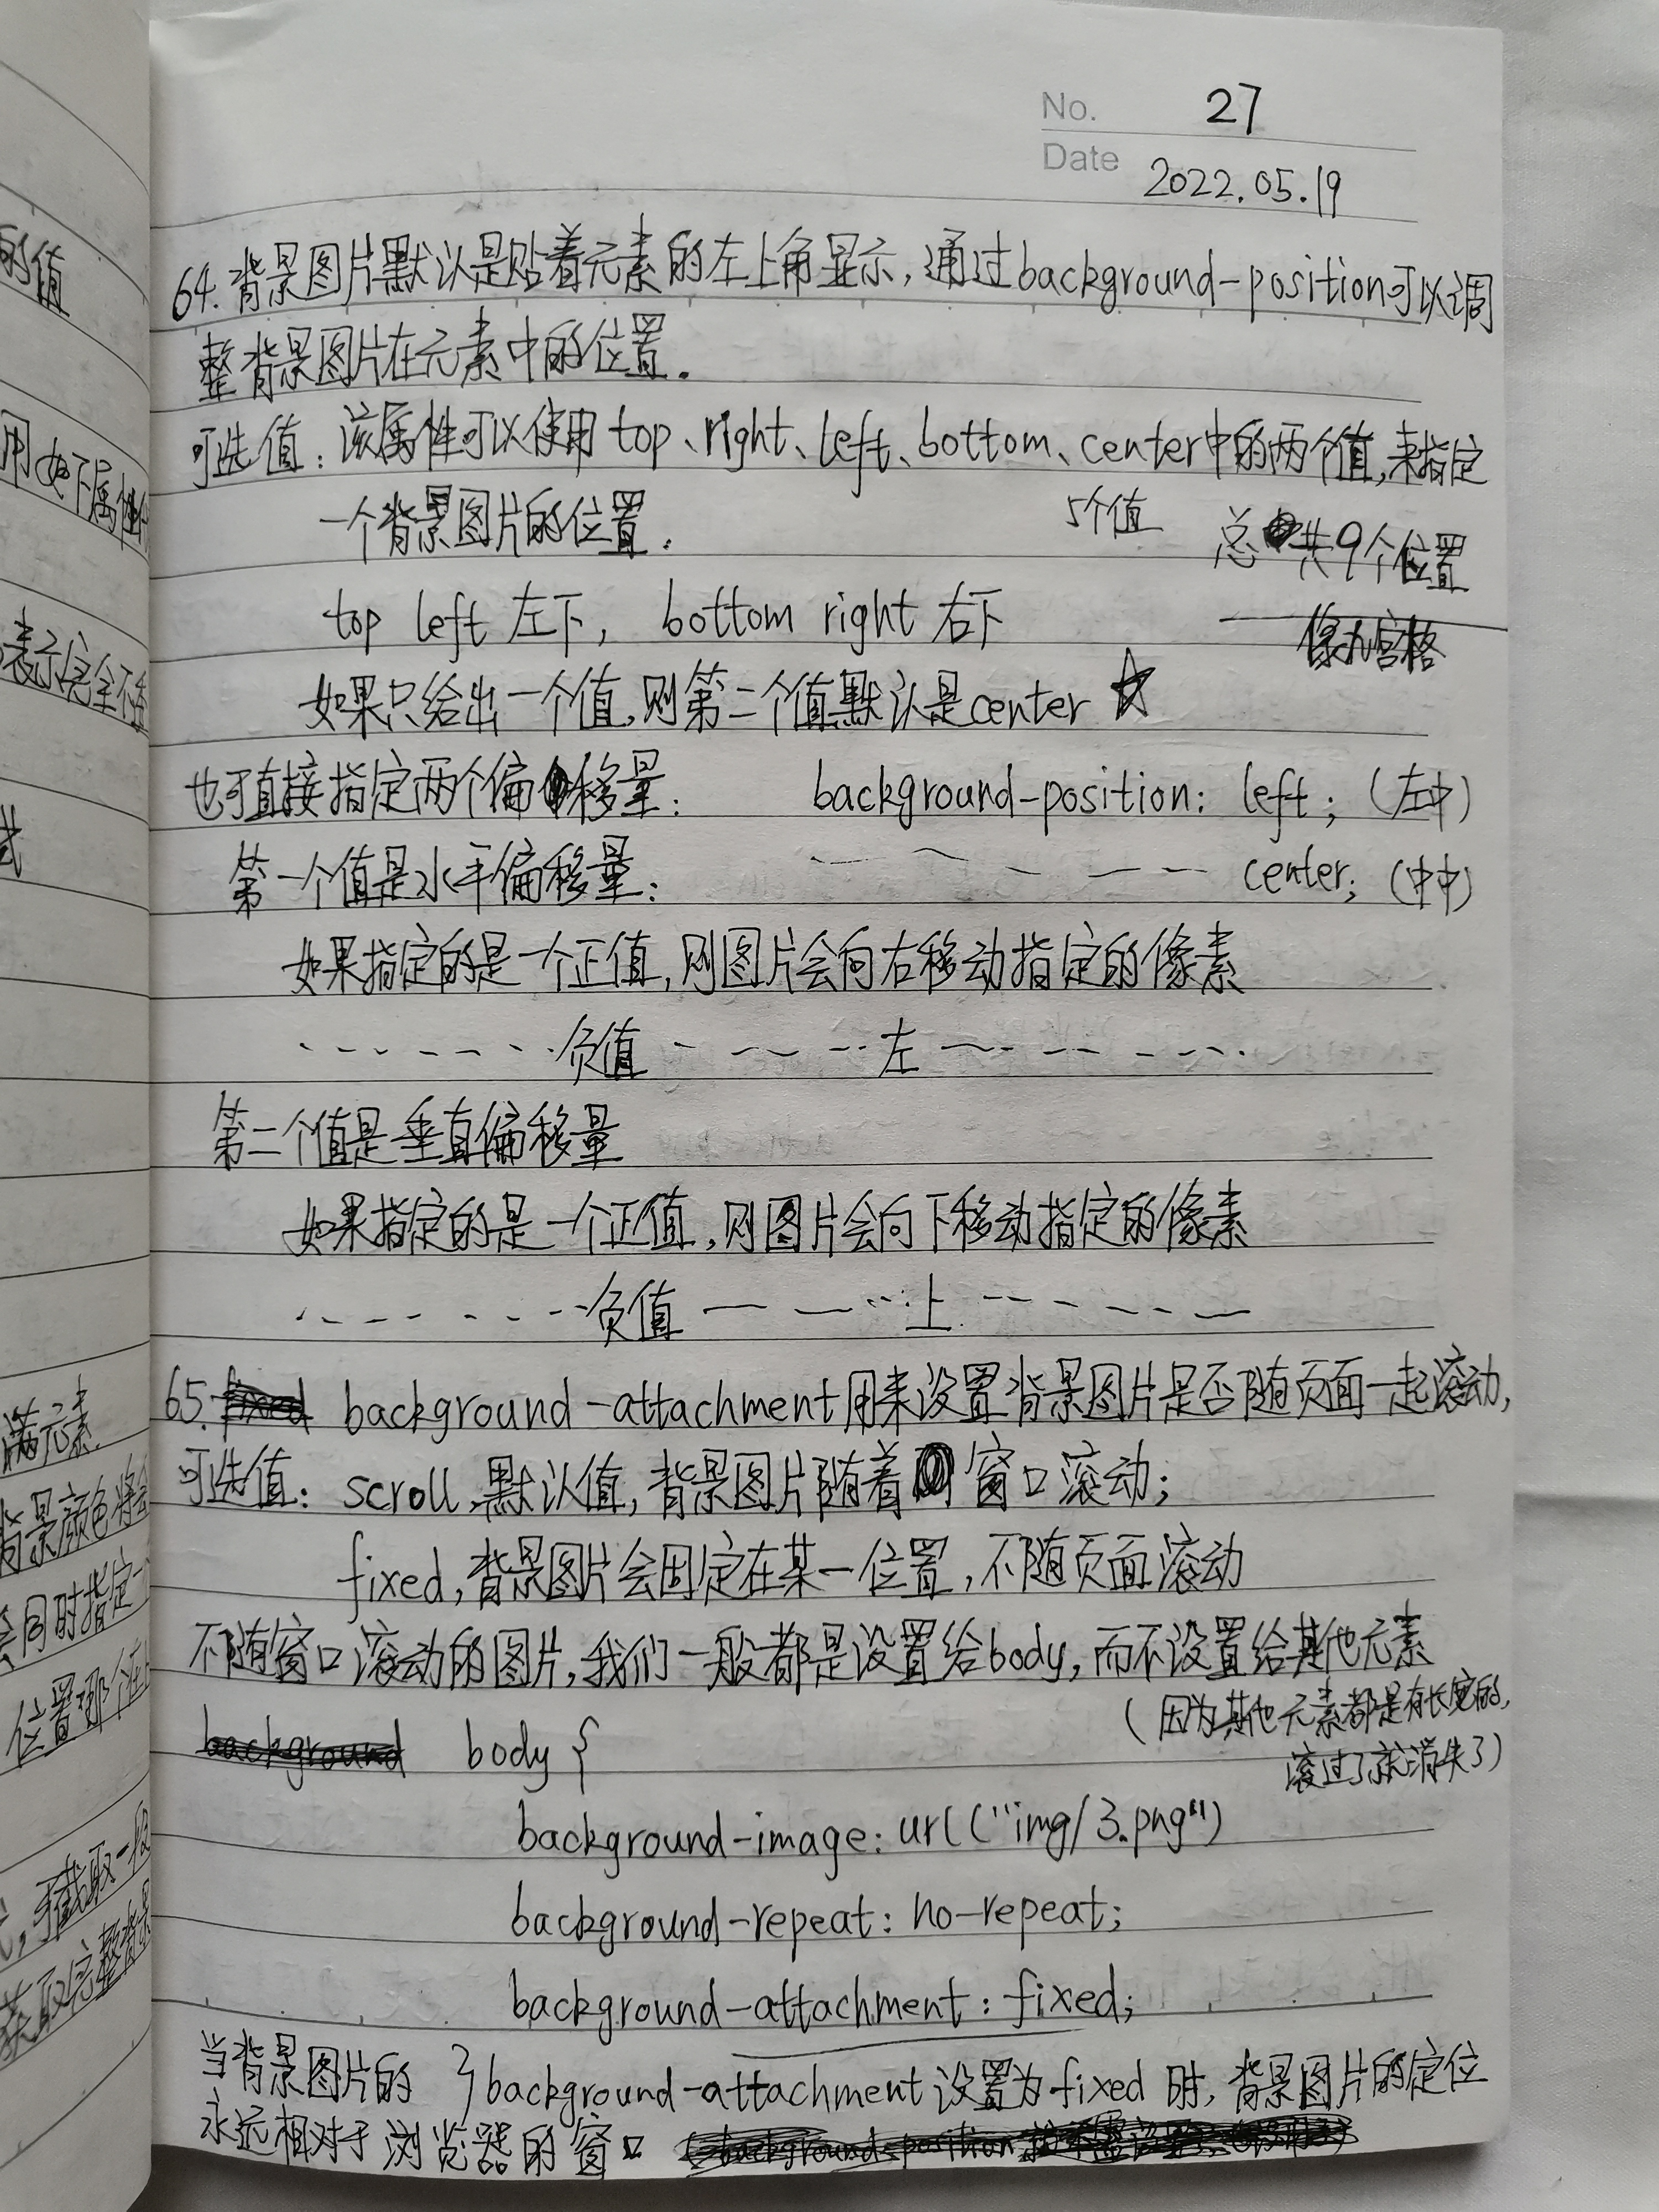 No. 27
Date 2022.05.19
64. 背景图片默认是贴着元素的左上角显示, 通过background-position可以调
整背景图片在元素中的位置.
可选值: 该属性可以使用 top、right、left、bottom、center中的两个值, 来指定
一个背景图片的位置.
5个值
总共9个位置
像九宫格
top left 左下, bottom right 右下
如果只给出一个值, 则第二个值默认是center ☆
也可直接指定两个偏移量: background-position: left; (左中)
第一个值是水平偏移量: center; (中中)
如果指定的是一个正值, 则图片会向右移动指定的像素
负值 左
第二个值是垂直偏移量
如果指定的是一个正值, 则图片会向下移动指定的像素
负值 上
65. background-attachment用来设置背景图片是否随页面一起滚动,
可选值: scroll, 默认值, 背景图片随着窗口滚动;
fixed, 背景图片会固定在某一位置, 不随页面滚动
不随窗口滚动的图片, 我们一般都是设置给body, 而不设置给其他元素
(因为其他元素都是有长宽的,
滚过了就消失了)
background body {
background-image: url("img/3.png")
background-repeat: no-repeat;
background-attachment: fixed;
}
当背景图片的 background-attachment设置为fixed时, 背景图片的定位
永远相对于浏览器的窗口
的值
用如下属性
表示完全不
满元素
背景颜色将会
会同时指定一
位置哪个在